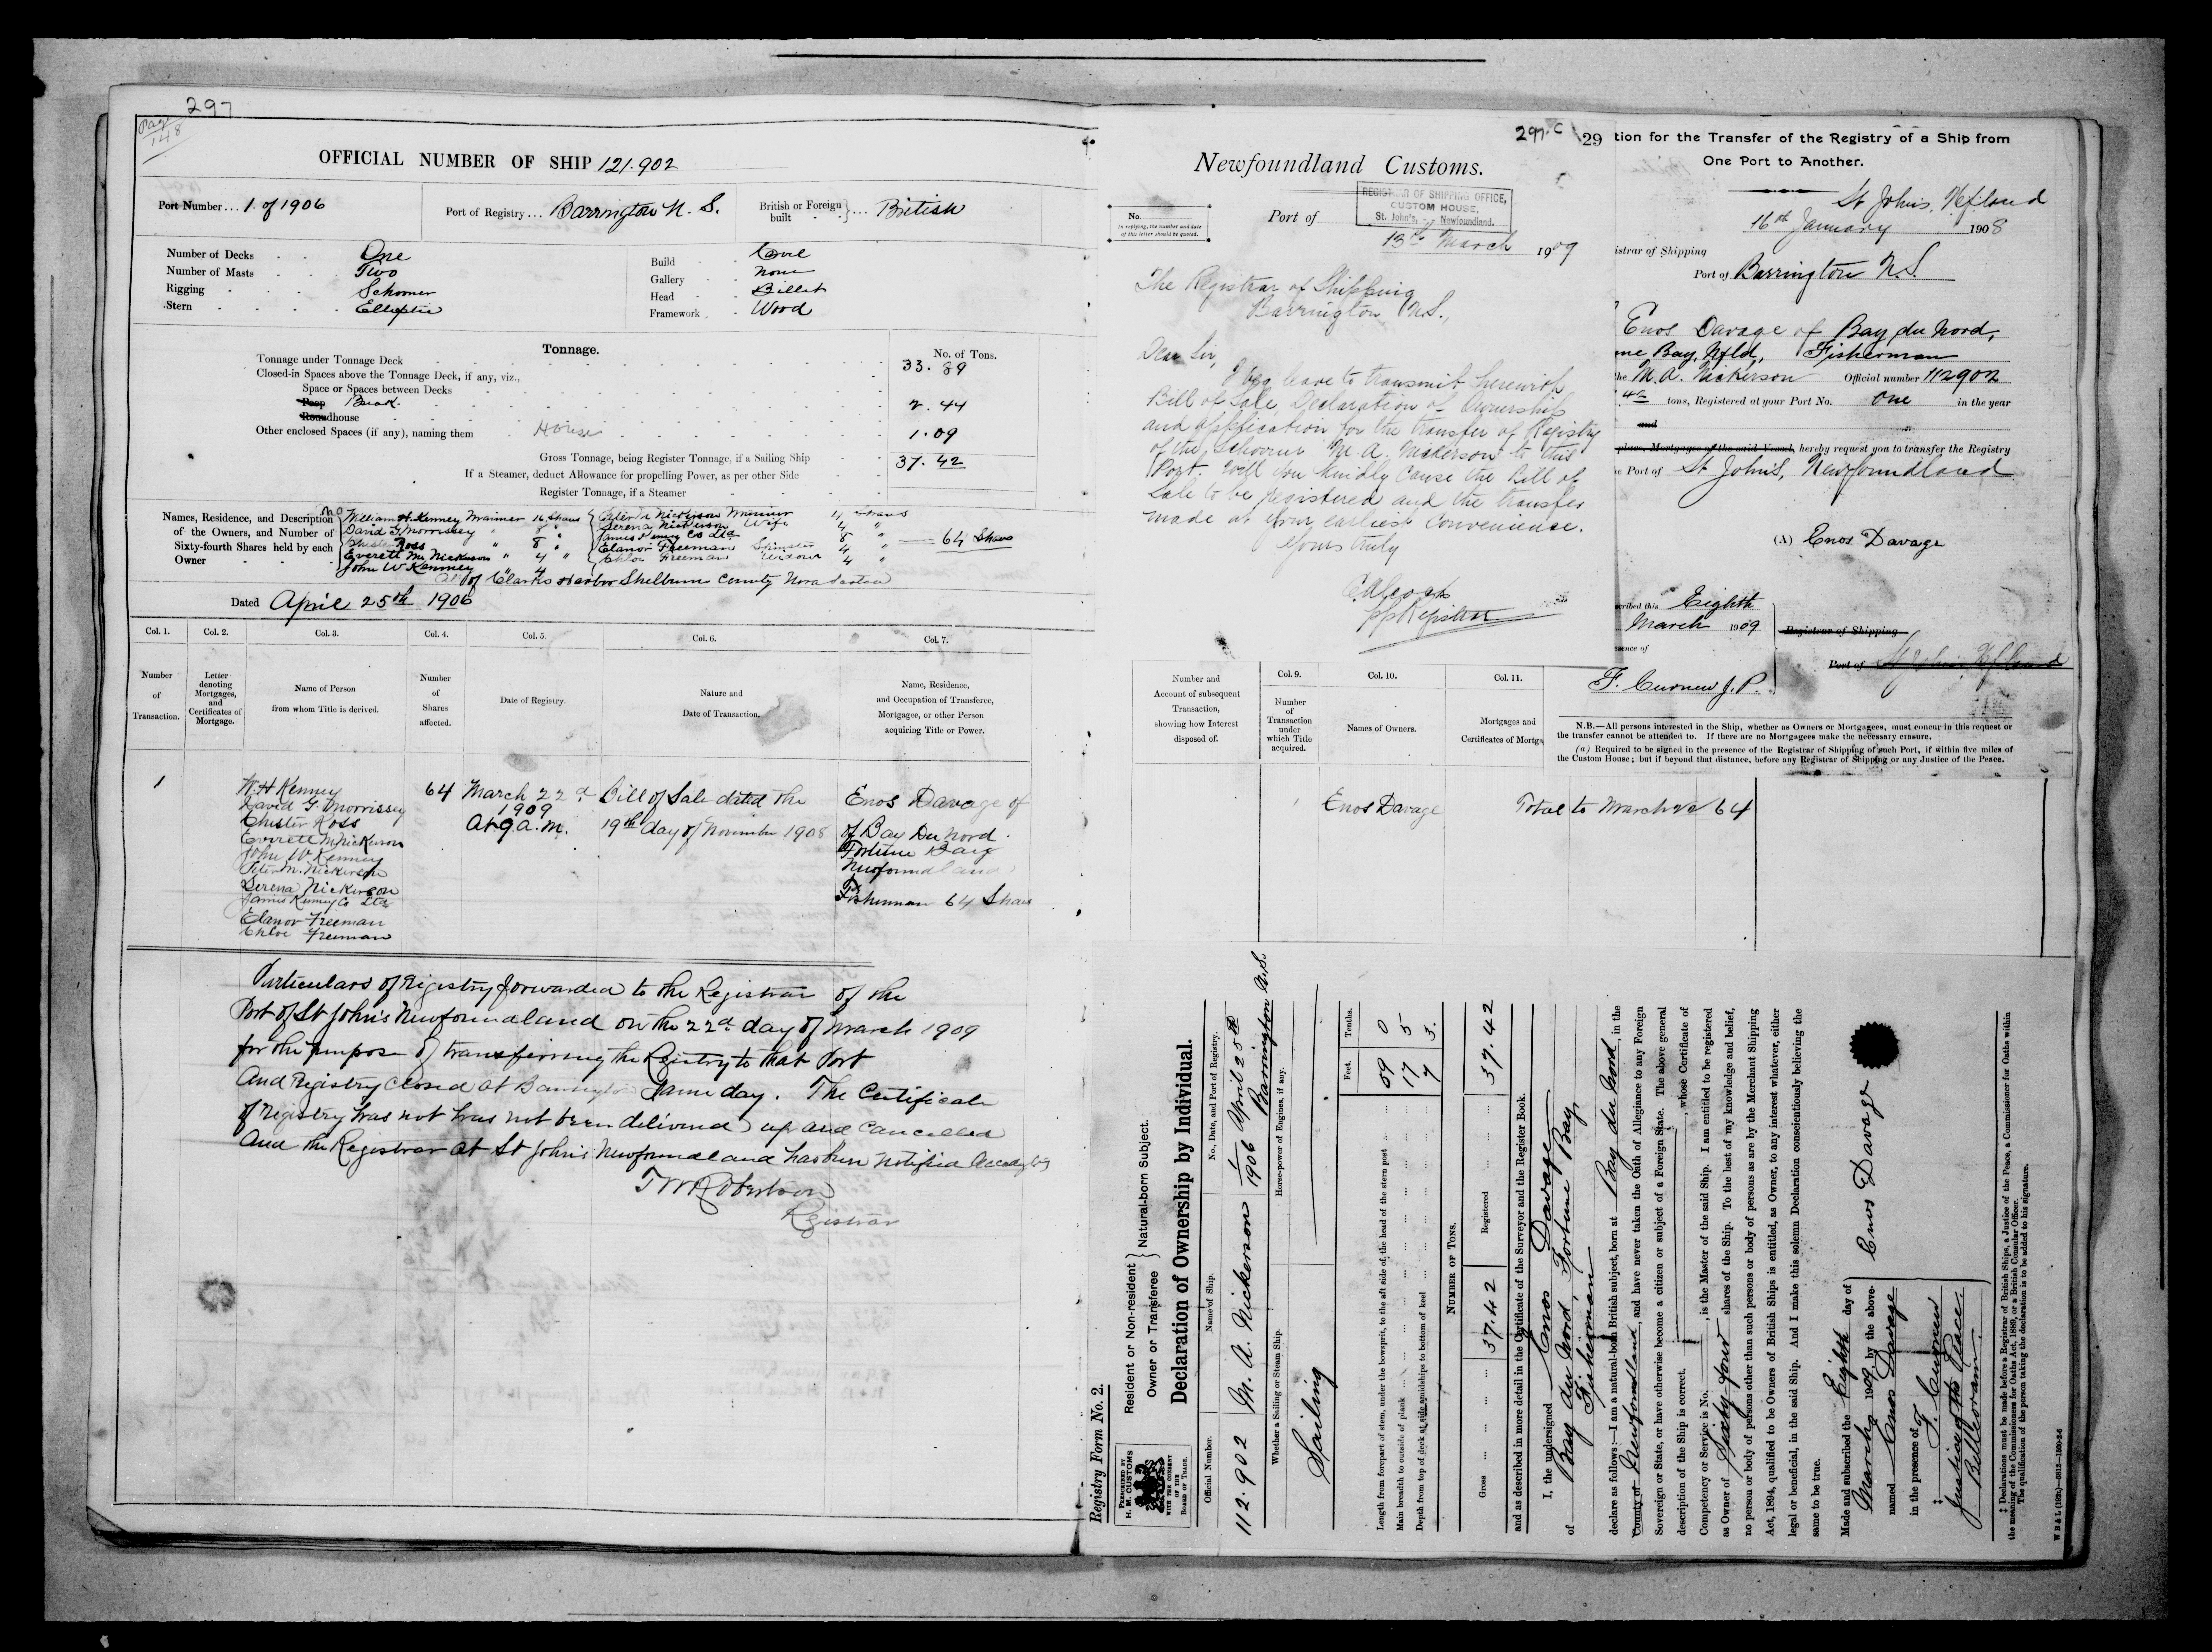 297
Page 148
OFFICIAL NUMBER OF SHIP 121.902
Port Number... 1. of 1906
Port of Registry... Barrington N. S.
British or Foreign built } ... British
Number of Decks One
Number of Masts Two
Rigging Schooner
Stern Elliptic
Build
Gallery None
Head Billet
Framework Wood
Tonnage.
No. of Tons.
Tonnage under Tonnage Deck 33.89
Closed-in Spaces above the Tonnage Deck, if any, viz.,
Space or Spaces between Decks
Poop Break 2.44
Roundhouse
Other enclosed Spaces (if any), naming them House 1.09
Gross Tonnage, being Register Tonnage, if a Sailing Ship 37.42
If a Steamer, deduct Allowance for propelling Power, as per other Side
Register Tonnage, if a Steamer
Names, Residence, and Description of the Owners, and Number of Sixty-fourth Shares held by each Owner
William H. Kenney Mariner 16 Shares
David G. Morrissey " 8 "
Chester Ross " 8 "
Everett M. Nickerson " 4 "
John W Kenney " 4
Peter M Nickerson Mariner 4 Shares
Serena Nickerson Wife 4 "
James Kenney Co Ltd 8 "
Elanor Freeman Spinster 4 "
Chloe Freeman Widow 4 "
64 Shares
All of Clarks Harbor Shelburne County Nova Scotia
Dated April 25th 1906
Col. 1.
Col. 2.
Col. 3.
Col. 4.
Col. 5.
Col. 6.
Col. 7.
Number of Transaction.
Letter denoting Mortgages, and Certificates of Mortgage.
Name of Person from whom Title is derived.
Number of Shares affected.
Date of Registry.
Nature and Date of Transaction.
Name, Residence, and Occupation of Transferee, Mortgagee, or other Person acquiring Title or Power.
1
W. H Kenney
David G Morrissey
Chester Ross
Everett M Nickerson
John W Kenney
Peter M. Nickerson
Serena Nickerson
James Kenney Co Ltd
Elanor Freeman
Chloe Freeman
64
March 22d
1909
At 9 a.m.
Bill of Sale dated the
19th day of November 1908
Enos Davage of
of Bay Du Nord
Fortune Bay
Newfoundland
Fisherman 64 Shares
Particulars of Registry forwarded to the Registrar of the
Port of St John's Newfoundland on the 22d day of March 1909
for the purpose of transferring the Registry to that Port
And Registry closed at Barrington Same day. The Certificate
of registry has not has not been delivered up and Cancelled
And the Registrar at St John's Newfoundland has been notified Accordingly
T W Robertson
Registrar
297.C
29
Newfoundland Customs.
No.
In replying, the number and date of this letter should be quoted.
Port of
REGISTRAR OF SHIPPING OFFICE,
CUSTOM HOUSE,
St. John's, Newfoundland.
13th March 1909
The Registrar of Shipping
Barrington N.S.,
Dear Sir,
I beg leave to transmit herewith
Bill of Sale, Declaration of Ownership
and application for the transfer of Registry
of the Schooner M. A. Nickerson to this
Port. Will you kindly cause the Bill of
Sale to be registered and the transfer
made at your earliest convenience.
Yours truly
tion for the Transfer of the Registry of a Ship from
One Port to Another.
St Johns, Nfland
16th January 1908
istrar of Shipping
Port of Barrington N.S.
Enos Davage of Bay du Nord,
une Bay, Nfld, Fisherman
the M. A. Nickerson Official number 112902
.42 tons, Registered at your Port No. One in the year
and
place, Mortgagee of the said Vessel, hereby request you to transfer the Registry
e Port of St John's, Newfoundland
(A) Enos Davage
cribed this Eighth
March 1909
sence of
Registrar of Shipping
Port of St Johns, Nfland
F. Curnew J.P.
N.B.—All persons interested in the Ship, whether as Owners or Mortgagees, must concur in this request or
the transfer cannot be attended to. If there are no Mortgagees make the necessary erasure.
(a) Required to be signed in the presence of the Registrar of Shipping of such Port, if within five miles of
the Custom House; but if beyond that distance, before any Registrar of Shipping or any Justice of the Peace.
Number and Account of subsequent Transaction, showing how Interest disposed of.
Col. 9.
Number of Transaction under which Title acquired.
Col. 10.
Names of Owners.
Col. 11.
Mortgages and
Certificates of Mortga
1
Enos Davage
Total to March 22 64
Registry Form No. 2.
PRESCRIBED BY H. M. CUSTOMS WITH THE CONSENT OF THE BOARD OF TRADE.
Resident or Non-resident Owner or Transferee } Natural-born Subject.
Declaration of Ownership by Individual.
Official Number.
Name of Ship.
No., Date, and Port of Registry.
112.902
M. A. Nickerson
1/1906 April 25th Barrington N.S.
Whether a Sailing or Steam Ship.
Horse-power of Engines, if any.
Sailing
Feet. Tenths.
Length from forepart of stem, under the bowsprit, to the aft side of the head of the stern post 59 0
Main breadth to outside of plank 17 5
Depth from top of deck at side amidships to bottom of keel 7 3.
NUMBER OF TONS.
Gross 37.42 Registered 37.42
and as described in more detail in the Certificate of the Surveyor and the Register Book.
I, the undersigned Enos Davage
of Bay du Nord, Fortune Bay,
Fisherman
declare as follows:—I am a natural-born British subject, born at Bay du Nord, in the
County of Newfoundland, and have never taken the Oath of Allegiance to any Foreign
Sovereign or State, or have otherwise become a citizen or subject of a Foreign State. The above general
description of the Ship is correct. , whose Certificate of
Competency or Service is No. , is the Master of the said Ship. I am entitled to be registered
as Owner of Sixty four shares of the Ship. To the best of my knowledge and belief,
no person or body of persons other than such persons or body of persons as are by the Merchant Shipping
Act, 1894, qualified to be Owners of British Ships is entitled, as Owner, to any interest whatever, either
legal or beneficial, in the said Ship. And I make this solemn Declaration conscientiously believing the
same to be true.
Made and subscribed the Eighth day of
March 1909, by the above-
named Enos Davage
in the presence of
F. Curnew
Justice of the Peace.
Belleoram.
Enos Davage
‡ Declarations must be made before a Registrar of British Ships, a Justice of the Peace, a Commissioner for Oaths within
the meaning of the Commissioners for Oaths Act, 1889, or a British Consular Officer.
The qualification of the person taking the declaration is to be added to his signature.